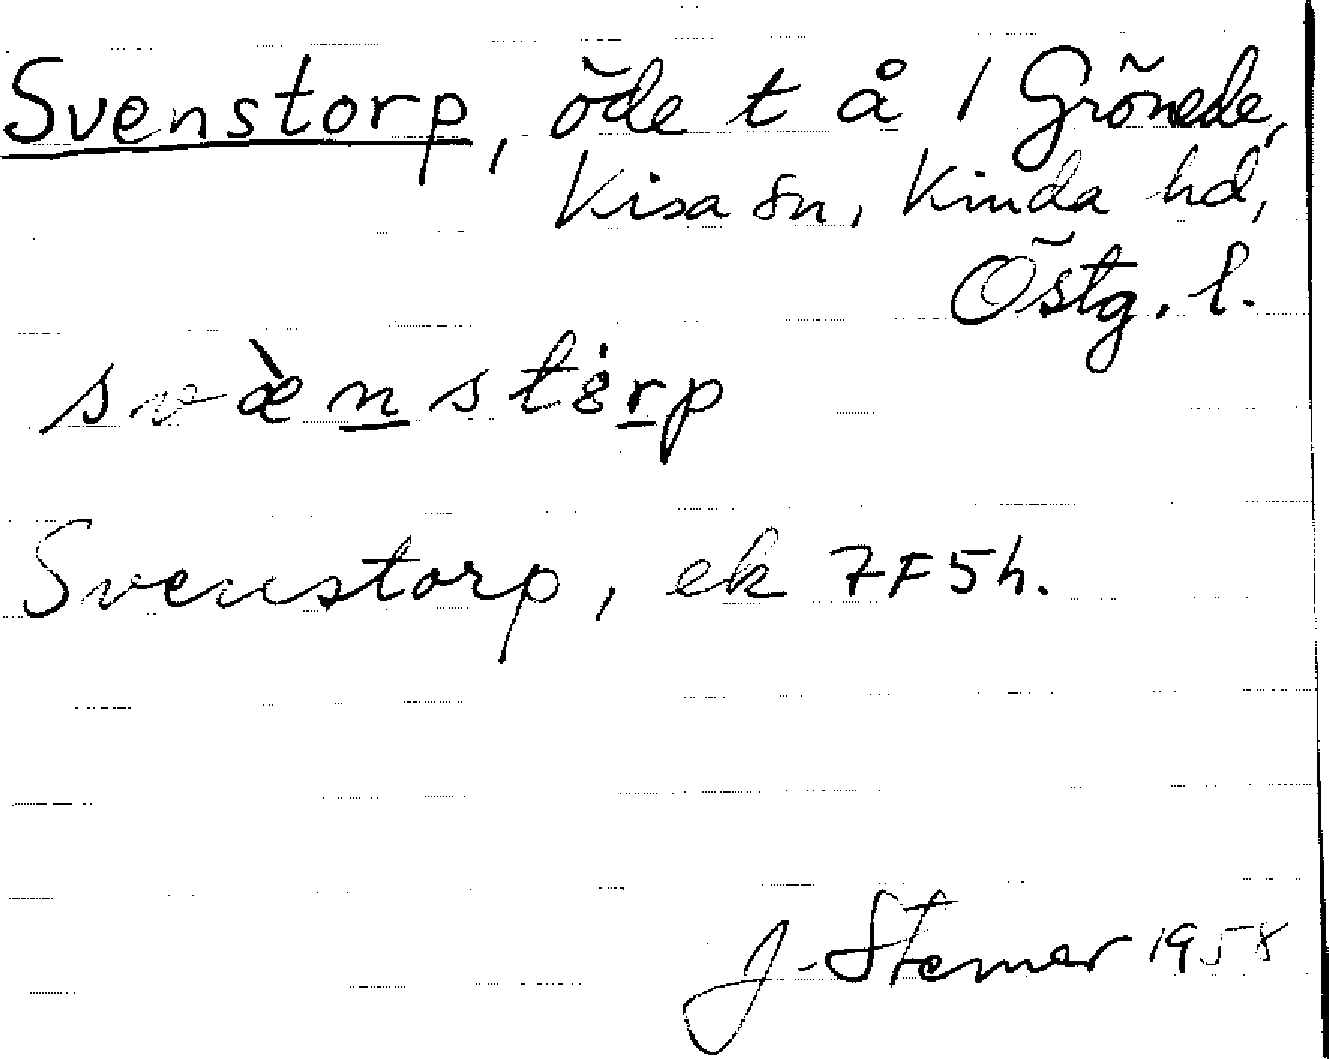 Svenstorp, öde t å 1 Grönede,
Kisa sn, Kinda hd,
Östg. l.
svæ̀nstȯrp
Svenstorp, ek 7F5h.
J. Stemer 1958